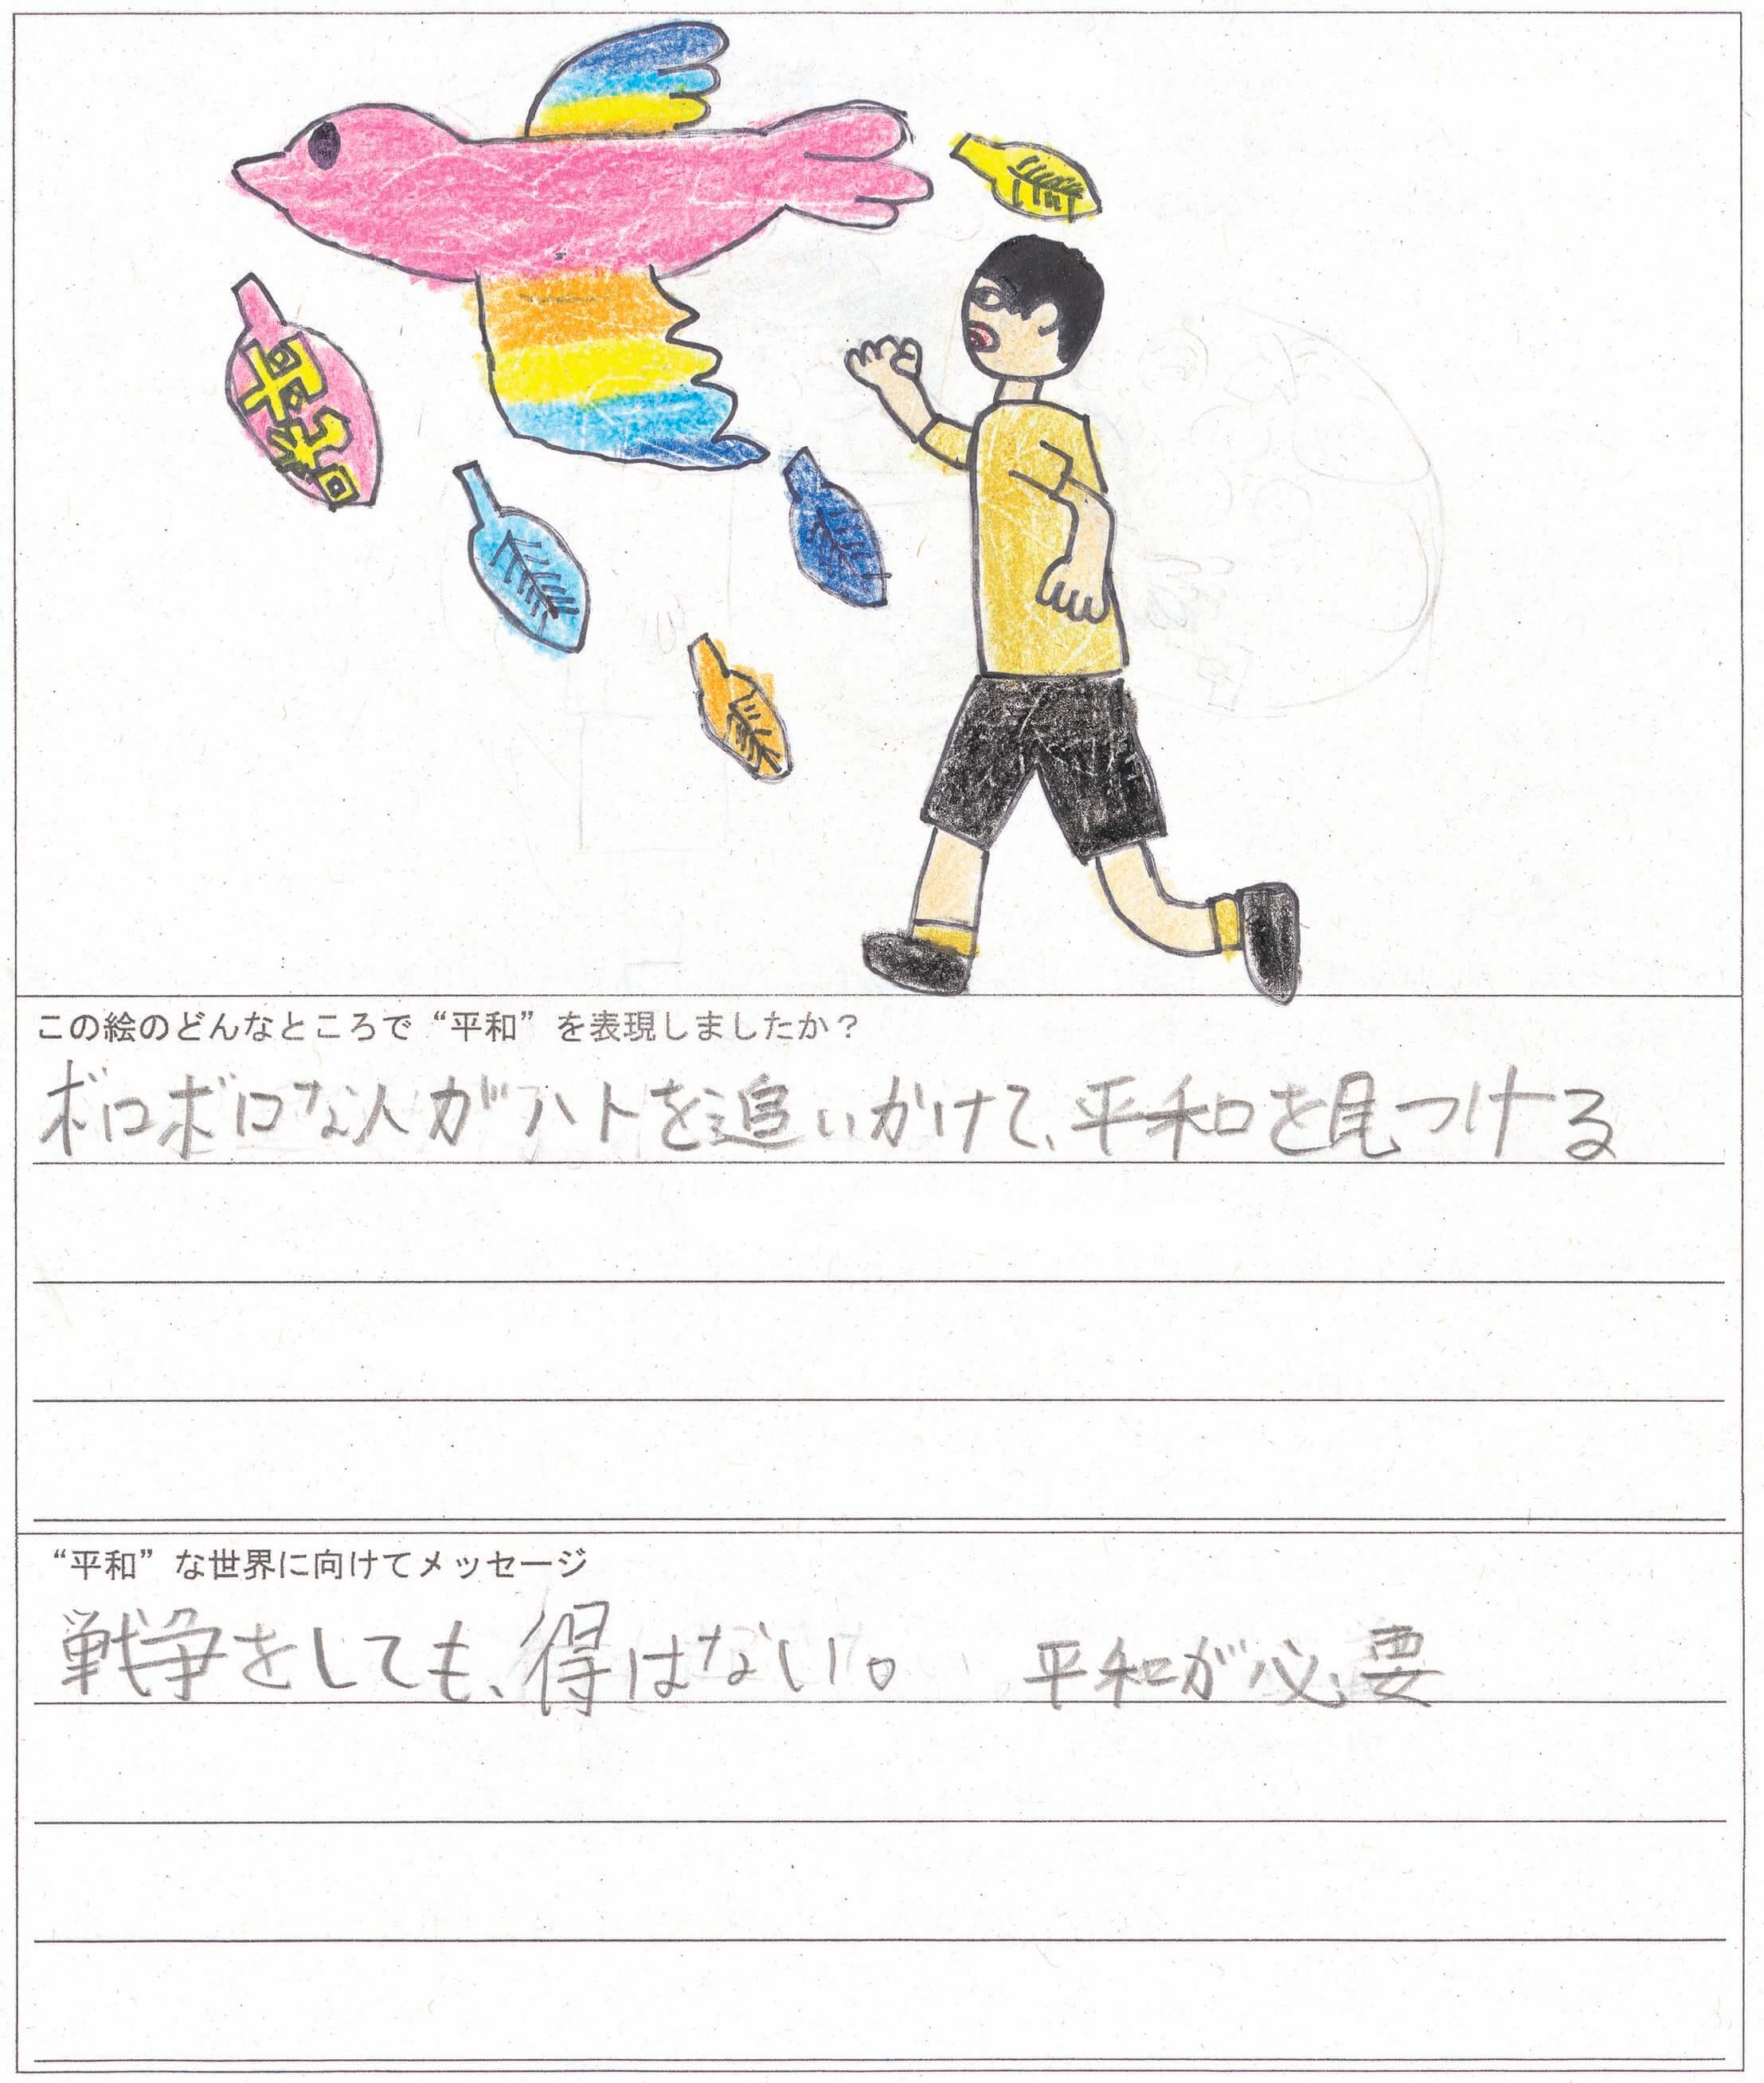 平和
この絵のどんなところで“平和”を表現しましたか？
ボロボロな人がハトを追いかけて、平和を見つける
“平和”な世界に向けてメッセージ
戦争をしても、得はない。 平和が必要